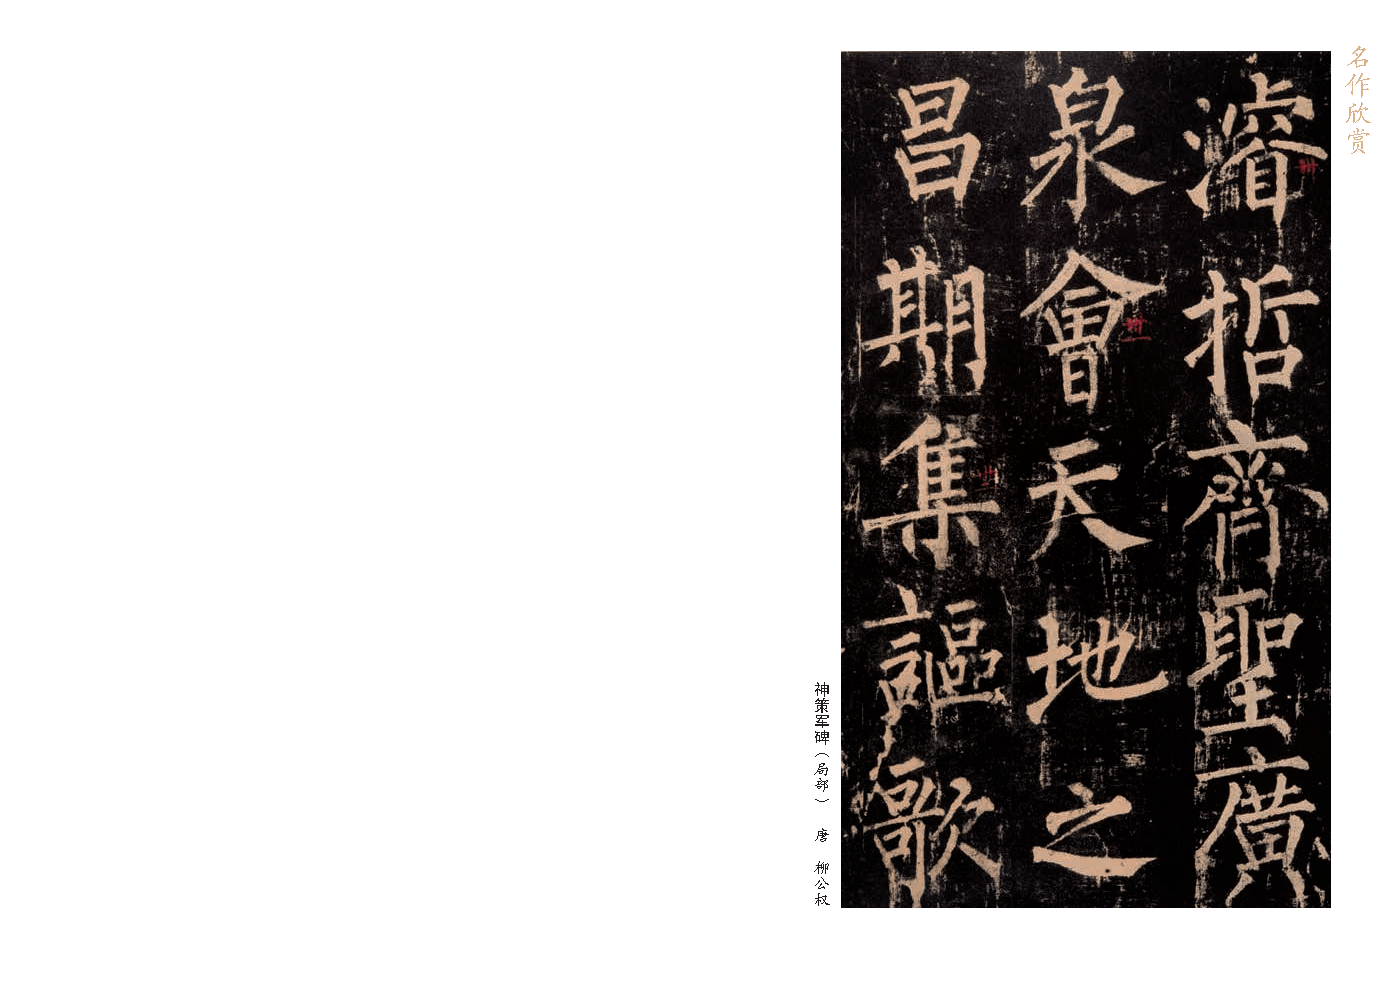 名作欣赏
濬哲齊聖廣
泉會天地之
昌期集謳歌
神策军碑（局部） 唐 柳公权